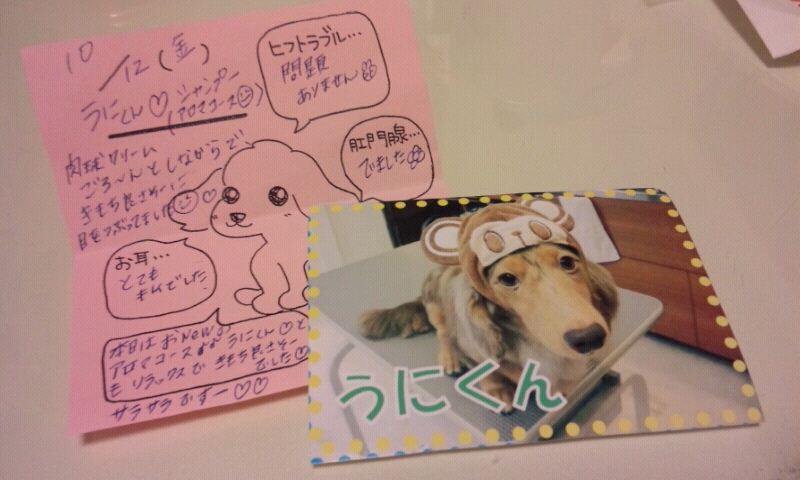 10/12(金)
うにくん♡シャンプー
(アロマコース)
ヒフトラブル…
問題
ありません
肉球クリーム
ごろ〜んとしながらで、
きもち良さそーに
目をつぶってました
肛門腺…
でました
お耳…
とても
キレイでした
本日はおNewの
アロマコース♪♪うにくん♡と
も リラックスで きもち良さそー
でした♡
サラサラでーすー♡♡
うにくん